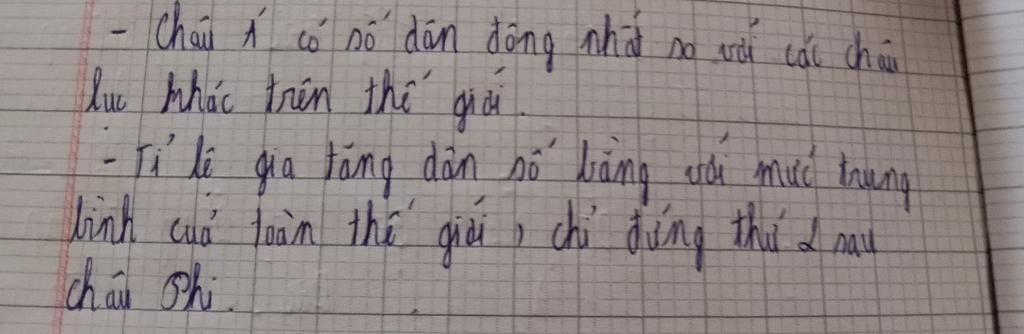 - Châu Á có số dân đông nhất so với các châu
lục khác trên thế giới.
- Tỉ lệ gia tăng dân số bằng với mức trung
bình của toàn thế giới, chỉ đứng thứ 2 sau
châu Phi.